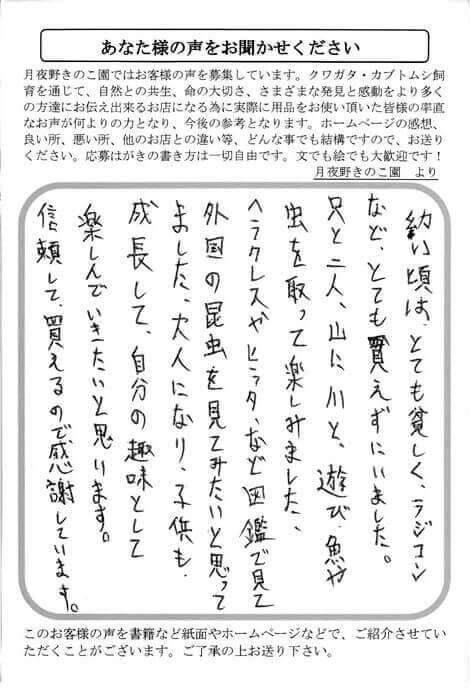 あなた様の声をお聞かせください
月夜野きのこ園ではお客様の声を募集しています。クワガタ・カブトムシ飼
育を通じて、自然との共生、命の大切さ、さまざまな発見と感動をより多く
の方達にお伝え出来るお店になる為に実際に用品をお使い頂いた皆様の率直
なお声が何よりの力となり、今後の参考となります。ホームページの感想、
良い所、悪い所、他のお店との違い等、どんな事でも結構ですので、お送り
ください。応募はがきの書き方は一切自由です。文でも絵でも大歓迎です！
月夜野きのこ園　より
幼い頃は、とても貧しく、ラジコン
など、とても買えずにいました。
兄と二人、山に川と、遊び、魚や
虫を取って楽しみました、
ヘラクレスやヒラタ、など図鑑で見て
外国の昆虫を見てみたいと思って
ました、大人になり、子供も
成長して、自分の趣味として
楽しんでいきたいと思います。
信頼して、買えるので感謝しています。
このお客様の声を書籍など紙面やホームページなどで、ご紹介させてい
ただくことがございます。ご了承の上お送り下さい。